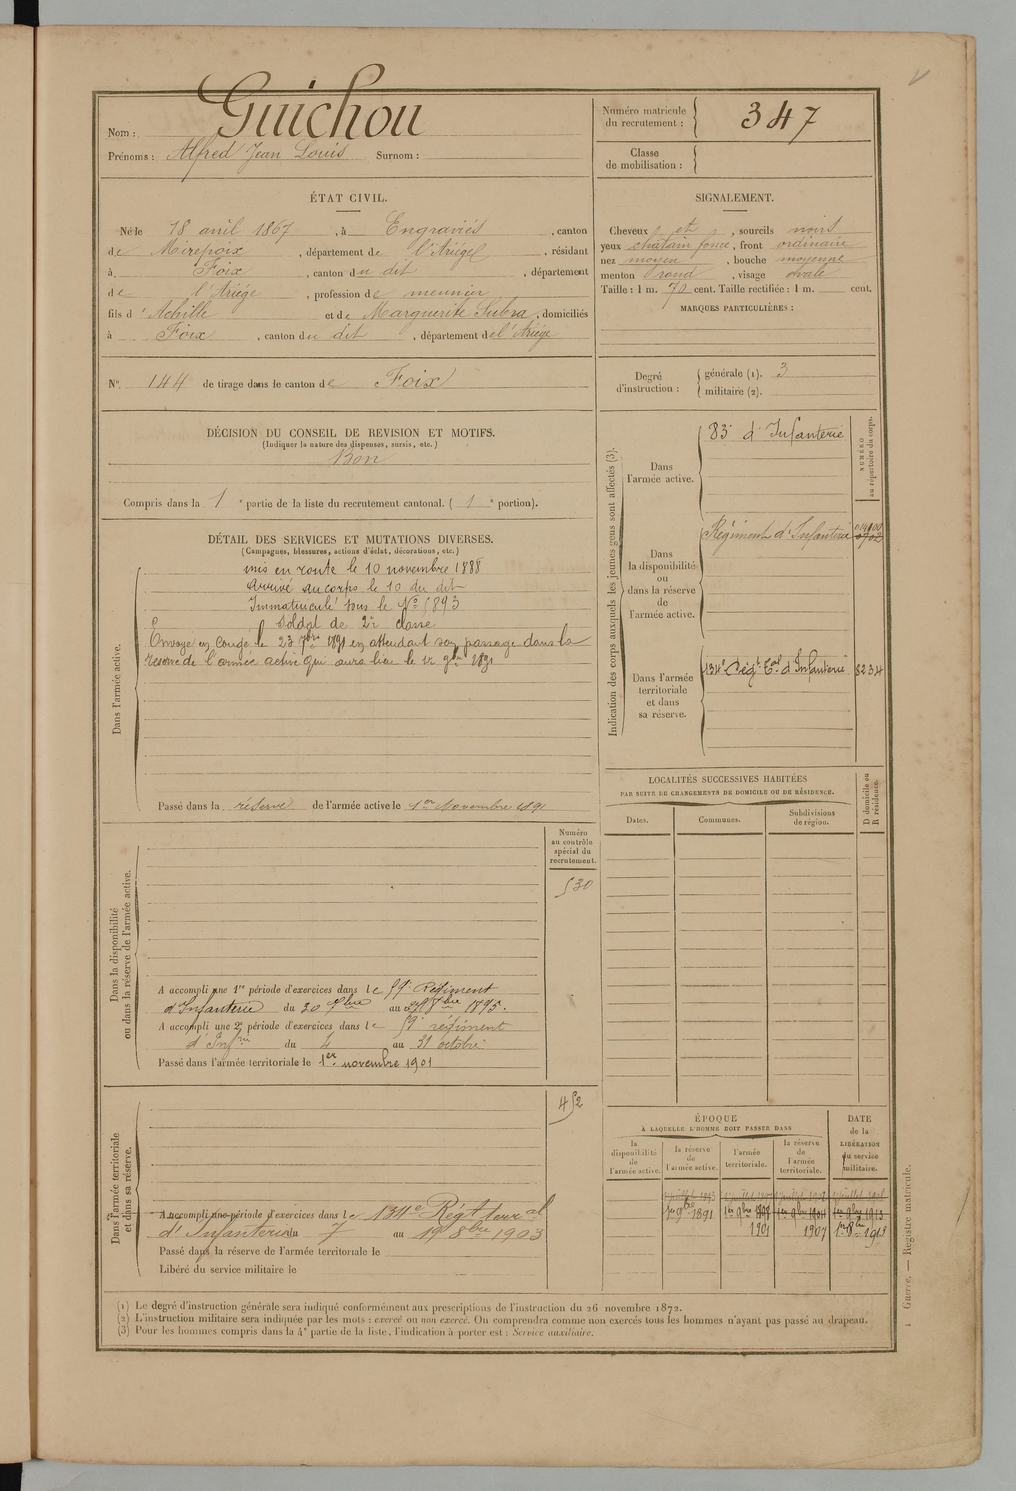 Nom : Guichou
Prénoms : Alfred Jean Louis Surnom :
Numéro matricule
du recrutement : 347
Classe
de mobilisation :
ÉTAT CIVIL.
Né le 18 avril 1867, à Engraviès, canton
de Mirepoix, département de l'Ariège, résidant
à Foix, canton du dit, département
de l'Ariège, profession de meunier
fils d'Achille et de Marguerite Subra, domiciliés
à Foix, canton du dit, département de l'Ariège
N° 144 de tirage dans le canton de Foix
SIGNALEMENT.
Cheveux et, sourcils noirs
yeux chatain foncé, front ordinaire
nez moyen, bouche moyenne
menton rond, visage ovale
Taille : 1 m. 70 cent. Taille rectifiée : 1 m. cent.
MARQUES PARTICULIÈRES :
Degré
d'instruction :
générale (1). 3
militaire (2).
DÉCISION DU CONSEIL DE REVISION ET MOTIFS.
(Indiquer la nature des dispenses, sursis, etc.)
Bon
Compris dans la 1e partie de la liste du recrutement cantonal. ( 1e portion).
DÉTAIL DES SERVICES ET MUTATIONS DIVERSES.
(Campagnes, blessures, actions d'éclat, décorations, etc.)
Dans l'armée active.
mis en route le 10 novembre 1888
Arrivé au corps le 10 du dit
Immatriculé sous le N° 5893
Soldat de 2e classe
Envoyé en congé le 23 7bre 1891 en attendant son passage dans la
réserve de l'armée active qui aura lieu le 1er 9bre 1891
Passé dans la réserve de l'armée active le 1er Novembre 1891
Indication des corps auxquels les jeunes gens sont affectés (3).
NUMÉRO
au répertoire du corps.
Dans
l'armée active.
83e d'Infanterie
Dans
la disponibilité
ou
dans la réserve
de
l'armée active.
Régiment d'Infanterie
Dans l'armée
territoriale
et dans
sa réserve.
134e Régt Tal d'Infanterie 8234
LOCALITÉS SUCCESSIVES HABITÉES
PAR SUITE DE CHANGEMENTS DE DOMICILE OU DE RÉSIDENCE.
Dates.
Communes.
Subdivisions
de région.
D domicile ou
R résidence.
Numéro
au contrôle
spécial du
recrutement.
530
Dans la disponibilité
ou dans la réserve de l'armée active.
A accompli une 1re période d'exercices dans le 59e Régiment
d'Infanterie du 30 7bre au 27 8bre 1895.
A accompli une 2e période d'exercices dans le 59e régiment
d'Infrie du 4 au 31 octobre
Passé dans l'armée territoriale le 1er novembre 1901
452
Dans l'armée territoriale
et dans sa réserve.
A accompli une période d'exercices dans le 134e Régt terral
d'Infanterie du 7 au 19 8bre 1903
Passé dans la réserve de l'armée territoriale le
Libéré du service militaire le
ÉPOQUE
À LAQUELLE L'HOMME DOIT PASSER DANS
la
disponibilité
de
l'armée active.
la réserve
de
l'armée active.
l'armée
territoriale.
la réserve
de
l'armée
territoriale.
DATE
de la
LIBÉRATION
du service
militaire.
1er 9bre 1891 1er 9bre 1898 1er 9bre 1904 1er 9bre 1913
1901 1907 1er 8bre 1913
(1) Le degré d'instruction générale sera indiqué conformément aux prescriptions de l'instruction du 26 novembre 1872.
(2) L'instruction militaire sera indiquée par les mots : exercé ou non exercé. On comprendra comme non exercés tous les hommes n'ayant pas passé au drapeau.
(3) Pour les hommes compris dans la 4e partie de la liste, l'indication à porter est : Service auxiliaire.
1 Guerre. — Registre matricule.